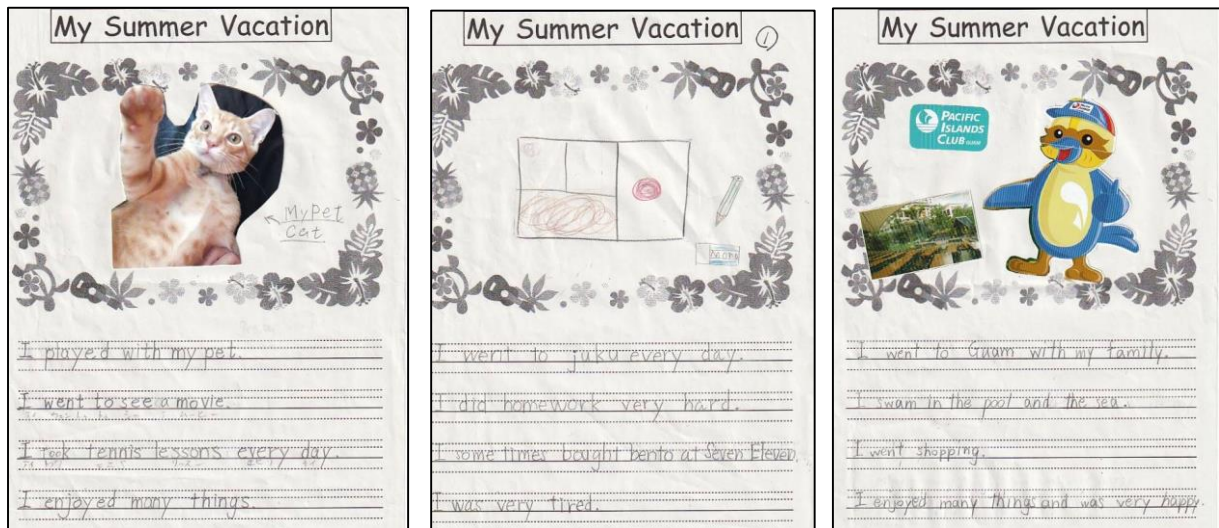 My Summer Vacation
My Pet
Cat
I played with my pet.
I went to see a movie.
I took tennis lessons every day.
I enjoyed many things.
My Summer Vacation ①
I went to juku every day.
I did homework very hard.
I some times bought bento at Seven Eleven.
I was very tired.
My Summer Vacation
PACIFIC
ISLANDS
CLUB GUAM
I went to Guam with my family.
I swam in the pool and the sea.
I went shopping.
I enjoyed many things and was very happy.